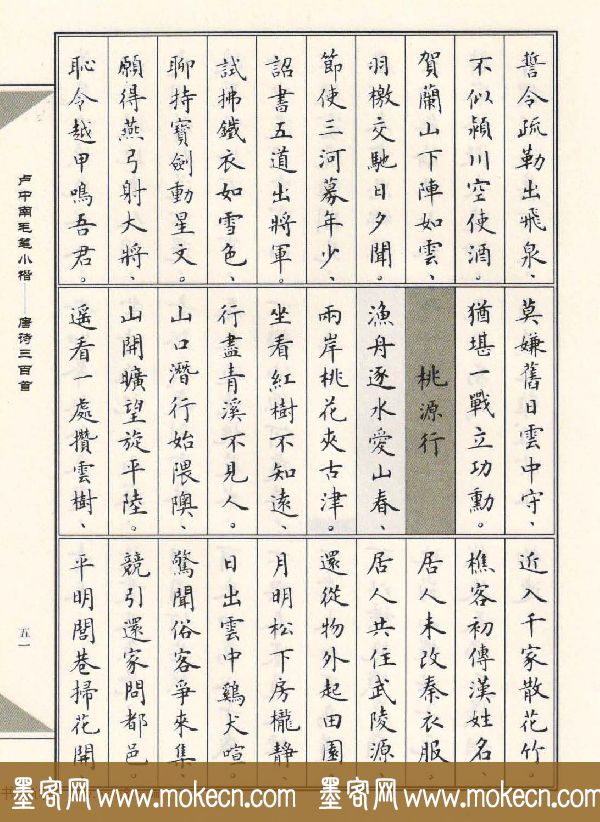 誓令疏勒出飛泉、
不似潁川空使酒。
賀蘭山下陣如雲、
羽檄交馳日夕聞。
節使三河募年少、
詔書五道出將軍。
試拂鐵衣如雪色、
聊持寶劍動星文。
願得燕弓射大將、
恥令越甲鳴吾君。
莫嫌舊日雲中守、
猶堪一戰立功勳。
桃源行
漁舟逐水愛山春、
兩岸桃花夾古津。
坐看紅樹不知遠、
行盡青溪不見人。
山口潛行始隈隩、
山開曠望旋平陸。
遥看一處攢雲樹、
近入千家散花竹。
樵客初傳漢姓名、
居人未改秦衣服。
居人共住武陵源、
還從物外起田園
月明松下房櫳靜、
日出雲中鷄犬喧。
驚聞俗客爭來集、
競引還家問都邑。
平明閭巷掃花開
卢中南毛笔小楷——唐诗三百首
五一
墨客网 www.mokecn.com 墨客网 www.mokecn.com